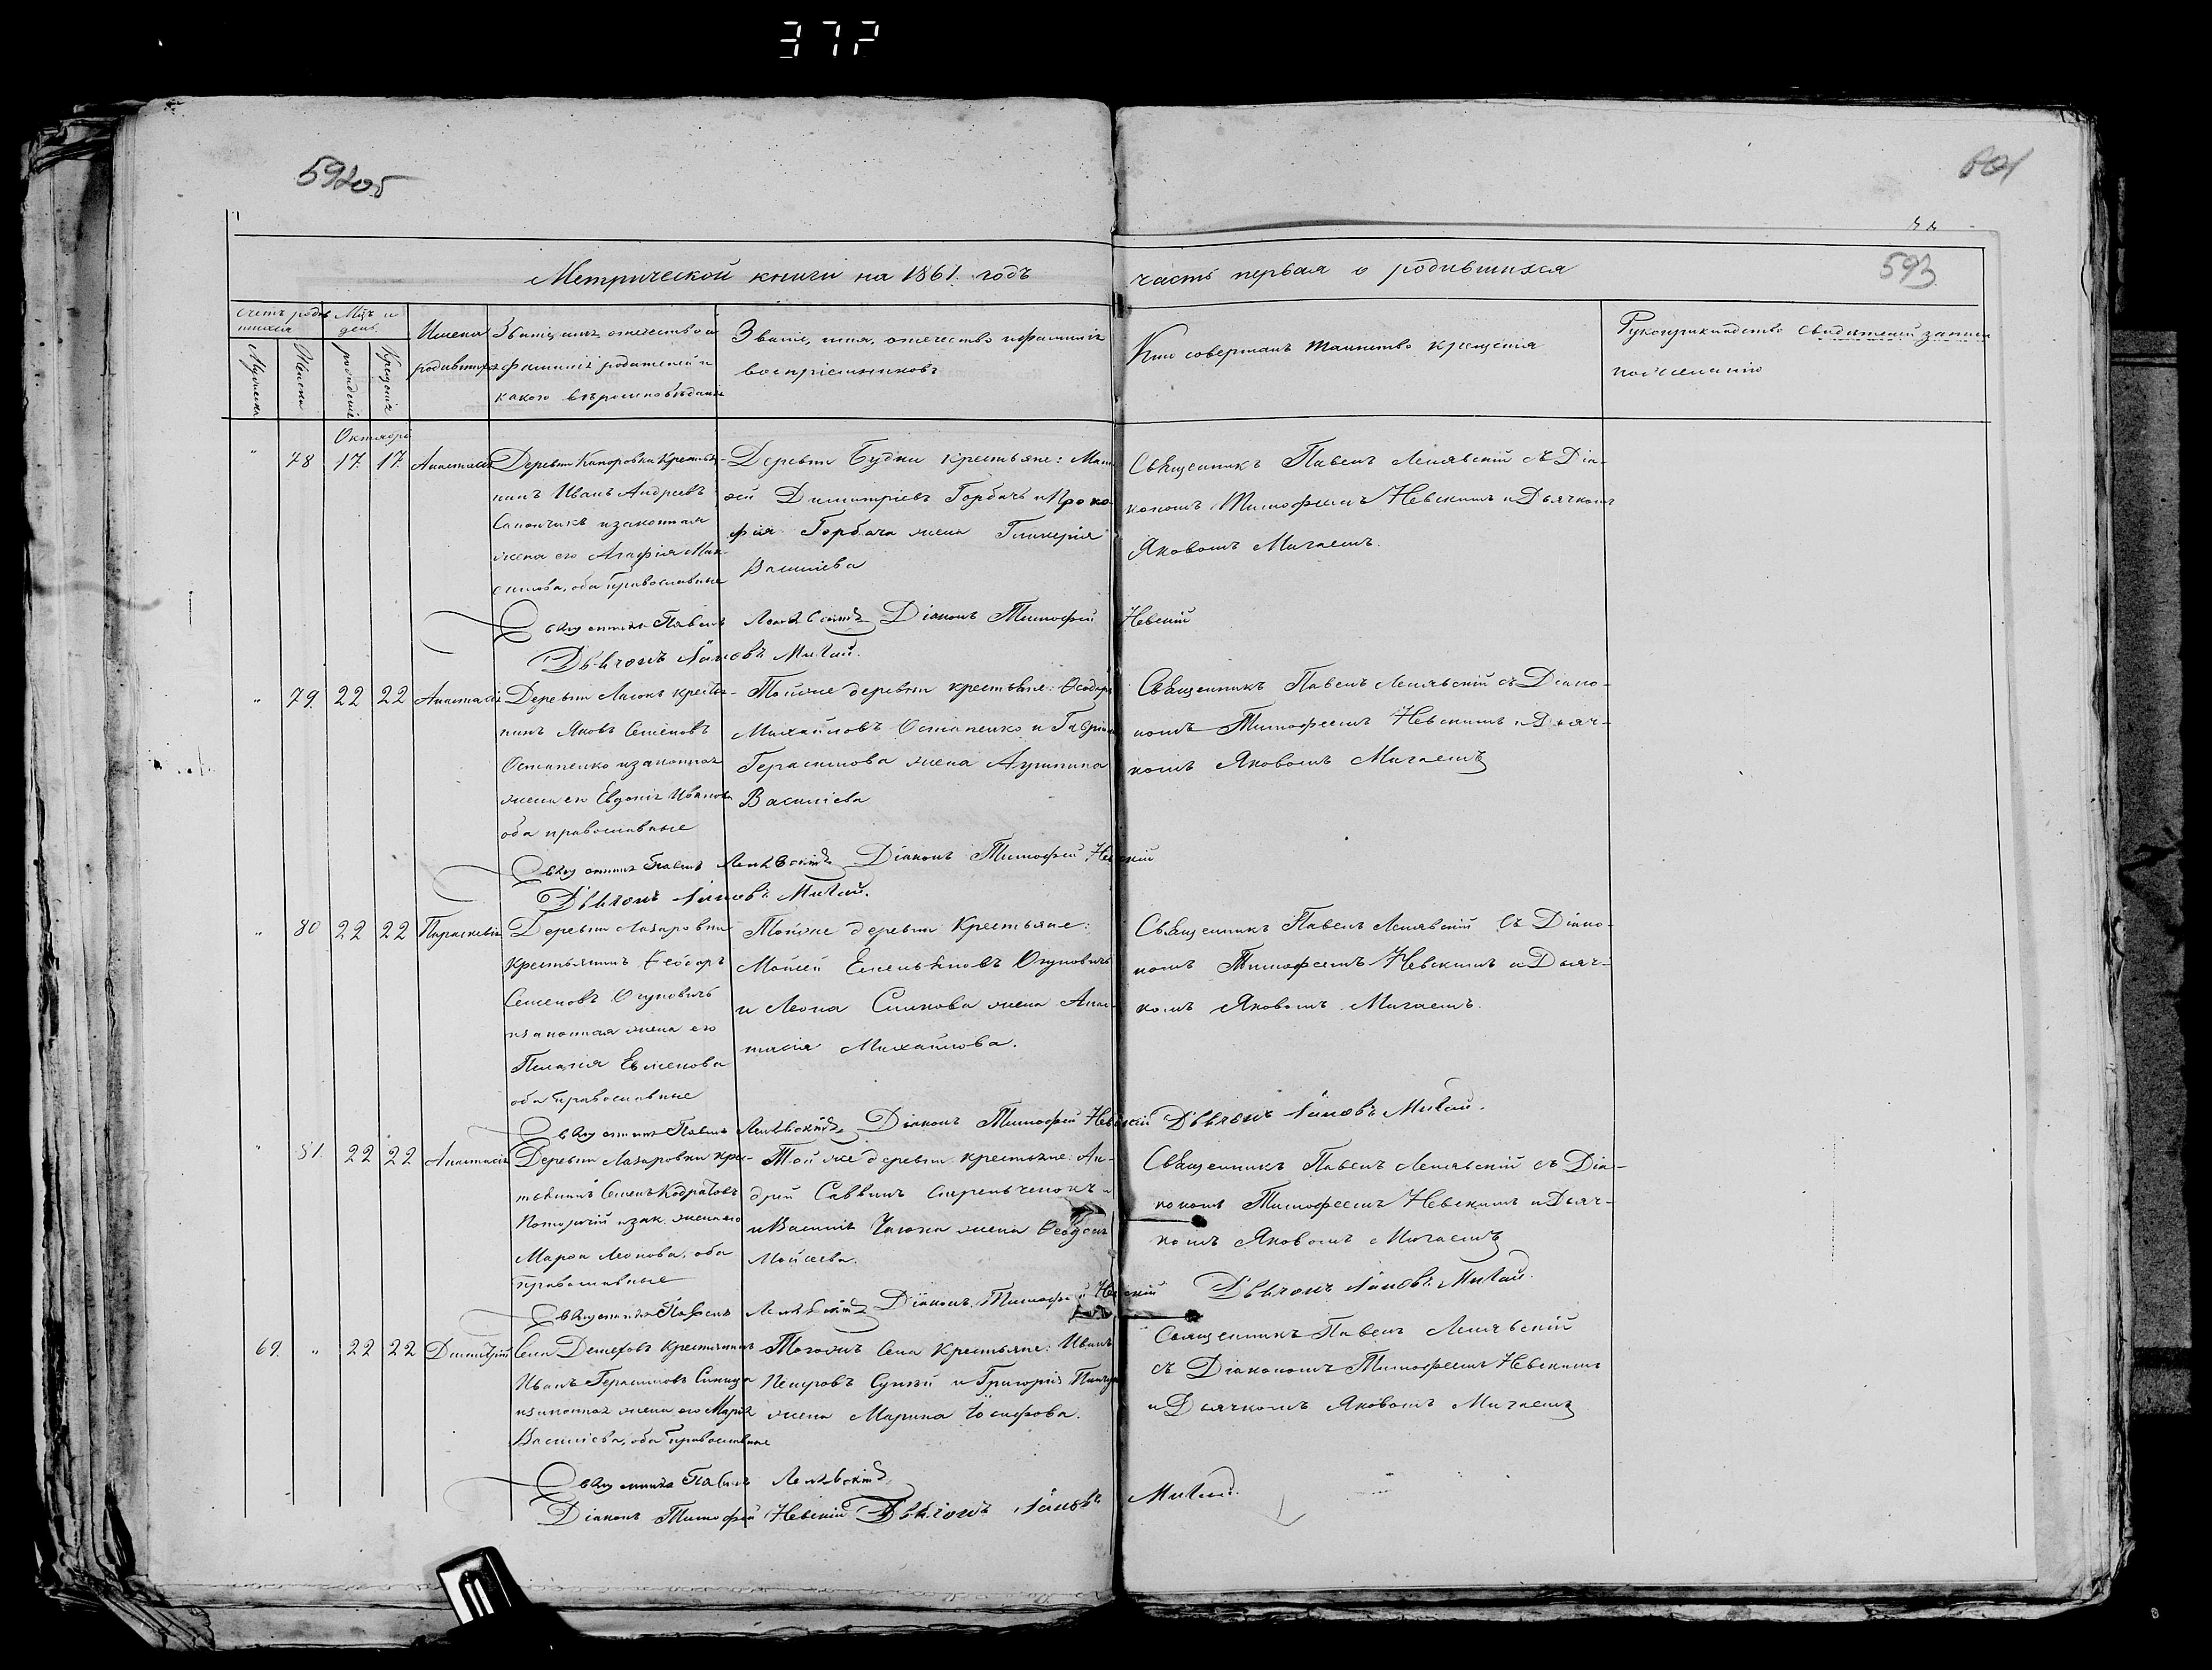 372
592об
601
593
Метрической книги на 1861. годъ
часть первая о родившихся
Счетъ родив
шихся
Мужеска
Женска
Мцъ и
день.
рождения
Крещения
Имена
родившихся
Званіе, имя, отчество и
фамилія родителей и
какого вѣроисповѣданія
Званіе, имя, отчество и фамилія
воспріемниковъ
Кто совершалъ таинство крещенія
Рукоприкладство свидетелей записи
по желанію
Октября
" 78 17. 17. Анастасія
Деревни Каторовки Крестья-
нинъ Иванъ Андреевъ
и законная
жена его Агафія Мак-
симова, оба православные
Деревни Будки крестьяне: Мат-
ѳей Димитріевъ Горбачъ и Проко-
фія Горбача жена Гликерія
Василіева
Священникъ Павелъ Ленявскій съ Діа-
кономъ Тимофеемъ Невскимъ и Дьячкомъ
Яковомъ Мигаемъ.
Священникъ Павелъ Ленявскій Діаконъ Тимофей Невскій
Дьячокъ Яковъ Мигай.
" 79. 22 22 Анастасія
Деревни Лисокъ крестья-
нинъ Яковъ Семеновъ
Остапенко и законная
жена его Евдокія Иванова
оба православные
Тойже деревни крестьяне: Ѳеодоръ
Михайловъ Остапенко и Гавріила
Герасимова жена Агрипина
Василіева
Священникъ Павелъ Ленявскій съ Діако-
номъ Тимофеемъ Невскимъ и Дьяч-
комъ Яковомъ Мигаемъ
Священникъ Павелъ Ленявскій Діаконъ Тимофей Невскій
Дьячокъ Яковъ Мигай.
" 80 22 22 Параскевія
Деревни Лазаровки
Крестьянинъ Ѳеодоръ
Семеновъ Окуновичъ
и законная жена его
Пелагія Евменова
оба православные
Тойже деревни Крестьяне:
Мойсей Емельяновъ Окуновичъ
и Леона Симкова жена Анас-
тасія Михайлова.
Священникъ Павелъ Ленявскій съ Діако-
номъ Тимофеемъ Невскимъ и Дьяч-
комъ Яковомъ Мигаемъ.
Священникъ Павелъ Ленявскій Діаконъ Тимофей Невскій Дьячокъ Яковъ Мигай.
" 81. 22 22 Анастасія
Деревни Лазаровки кре-
стьянинъ Семенъ Кодратовъ
и зак. жена его
Марѳа Леонова, оба
православные
Тойже деревни крестьяне: Ан-
дрей Саввинъ Стрельченокъ и
и Василія жена Ѳеодосія
Мойсеева.
Священникъ Павелъ Ленявскій съ Діа-
кономъ Тимофеемъ Невскимъ и Дьяч-
комъ Яковомъ Мигаемъ
Священникъ Павелъ Ленявскій Діаконъ Тимофей Невскій Дьячокъ Яковъ Мигай.
69. " 22 22 Димитрій
Села Демеховъ Крестьянинъ
Иванъ Герасимовъ Синица
и законная жена его Марія
Василіева, оба православные
Тогожъ села Крестьяне: Иванъ
Петровъ и Григорія
жена Марина Іосифова.
Священникъ Павелъ Ленявскій
съ Діакономъ Тимофеемъ Невскимъ
и Дьячкомъ Яковомъ Мигаемъ
Священникъ Павелъ Ленявскій
Діаконъ Тимофей Невскій Дьячокъ Яковъ Мигай.